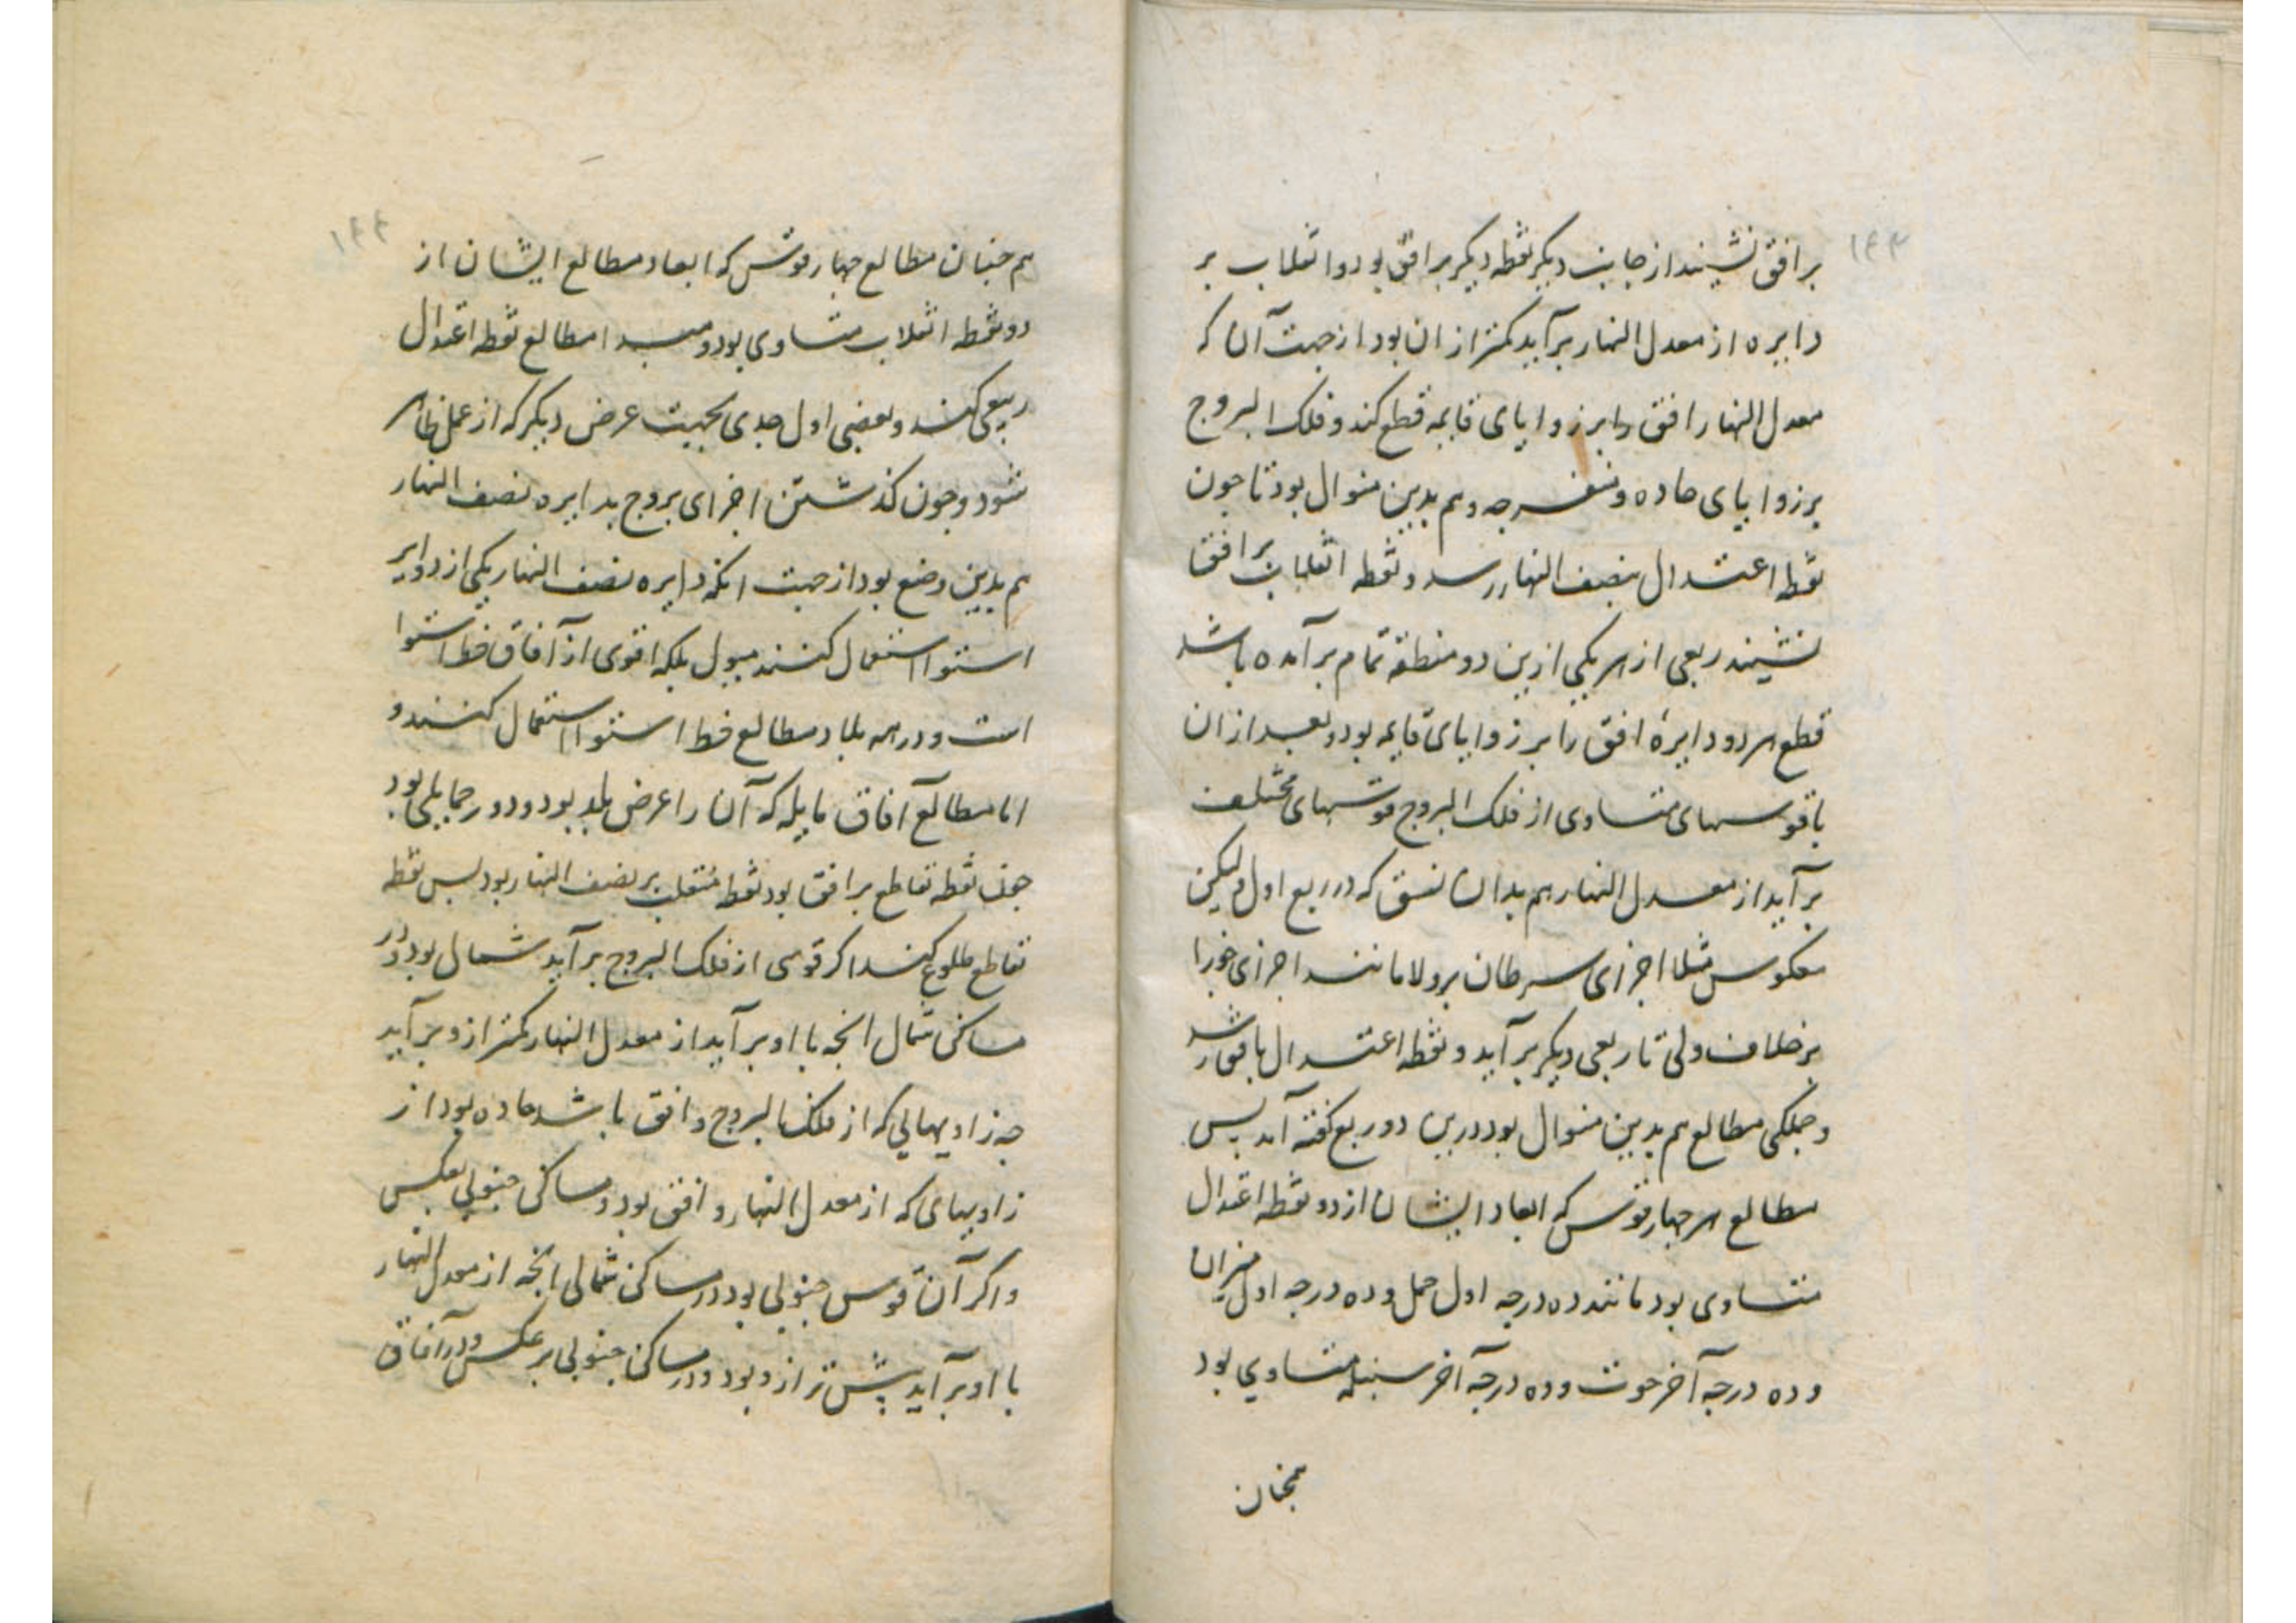 ۱۴۳
بر افق نشیند از جانب دیگر نقطه دیگر بر افق بود و انقلاب بر
دایره از معدل النهار برآید کمتر از ان بود از جهت آن که
معدل النهار افق را بر زوایای قایمه قطع کند و فلک البروج
بر زوایای حاده و منفرجه و هم بدین منوال بود تا چون
نقطه اعتدال بنصف النهار رسد و نقطه انقلاب بر افق
نشیند ربعی از هر یکی ازین دو منطقه تمام برآمده باشد
قطع هر دو دایرهٔ افق را بر زوایای قایمه بود و بعد از ان
با قوسهای متساوی از فلک البروج قوسهای مختلف
برآید از معدل النهار هم بدان نسق که در ربع اول ولیکن
معکوس مثلا اجزای سرطان بر ولا مانند اجزای جوزا
بر خلاف ولی تا ربعی دیگر برآید و نقطه اعتدال با افق رسد
و جملکی مطالع هم بدین منوال بود درین دو ربع گفته آمد پس
مطالع هر چهار قوس که ابعاد ایشان از دو نقطه اعتدال
متساوی بود مانند ده درجه اول حمل و ده درجه اول میزان
و ده درجه آخر حوت و ده درجه آخر سنبله متساوی بود
همچنان
۱۴۴
هم چنان مطالع چهار قوس که ابعاد مطالع ایشان از
دو نقطه انقلاب متساوی بود و مبدا مطالع نقطه اعتدال
ربیعی کنند و بعضی اول جدی بجهت عرض دیگر که از عمل ظاهر
شود و چون گذشتن اجزای بروج بدایره نصف النهار
هم بدین وضع بود از جهت انکه دایره نصف النهار یکی از دوایر
استوا استعمال کنند میول بلکه افقی از آفاق خط استوا
است و در همه بلاد مطالع خط استوا استعمال کنند و
اما مطالع آفاق مایله که آن را عرض بلد بود و دور حمایلی بود
چون نقطه تقاطع بر افق بود نقطه منقلب بر نصف النهار بود پس نقطه
تقاطع طلوع کند اگر قوسی از فلک البروج برآید شمال بود و در
مساکن شمال انچه با او برآید از معدل النهار کمتر از و برآید
چه زاویهایی که از فلک البروج و افق باشد حاده بود از
زاویهای که از معدل النهار و افق بود و مساکن جنوبی بعکس
و اگر آن قوس جنوبی بود در مساکن شمالی انچه از معدل النهار
با او برآید پیش تر از و بود و در مساکن جنوبی بر عکس و در آفاق